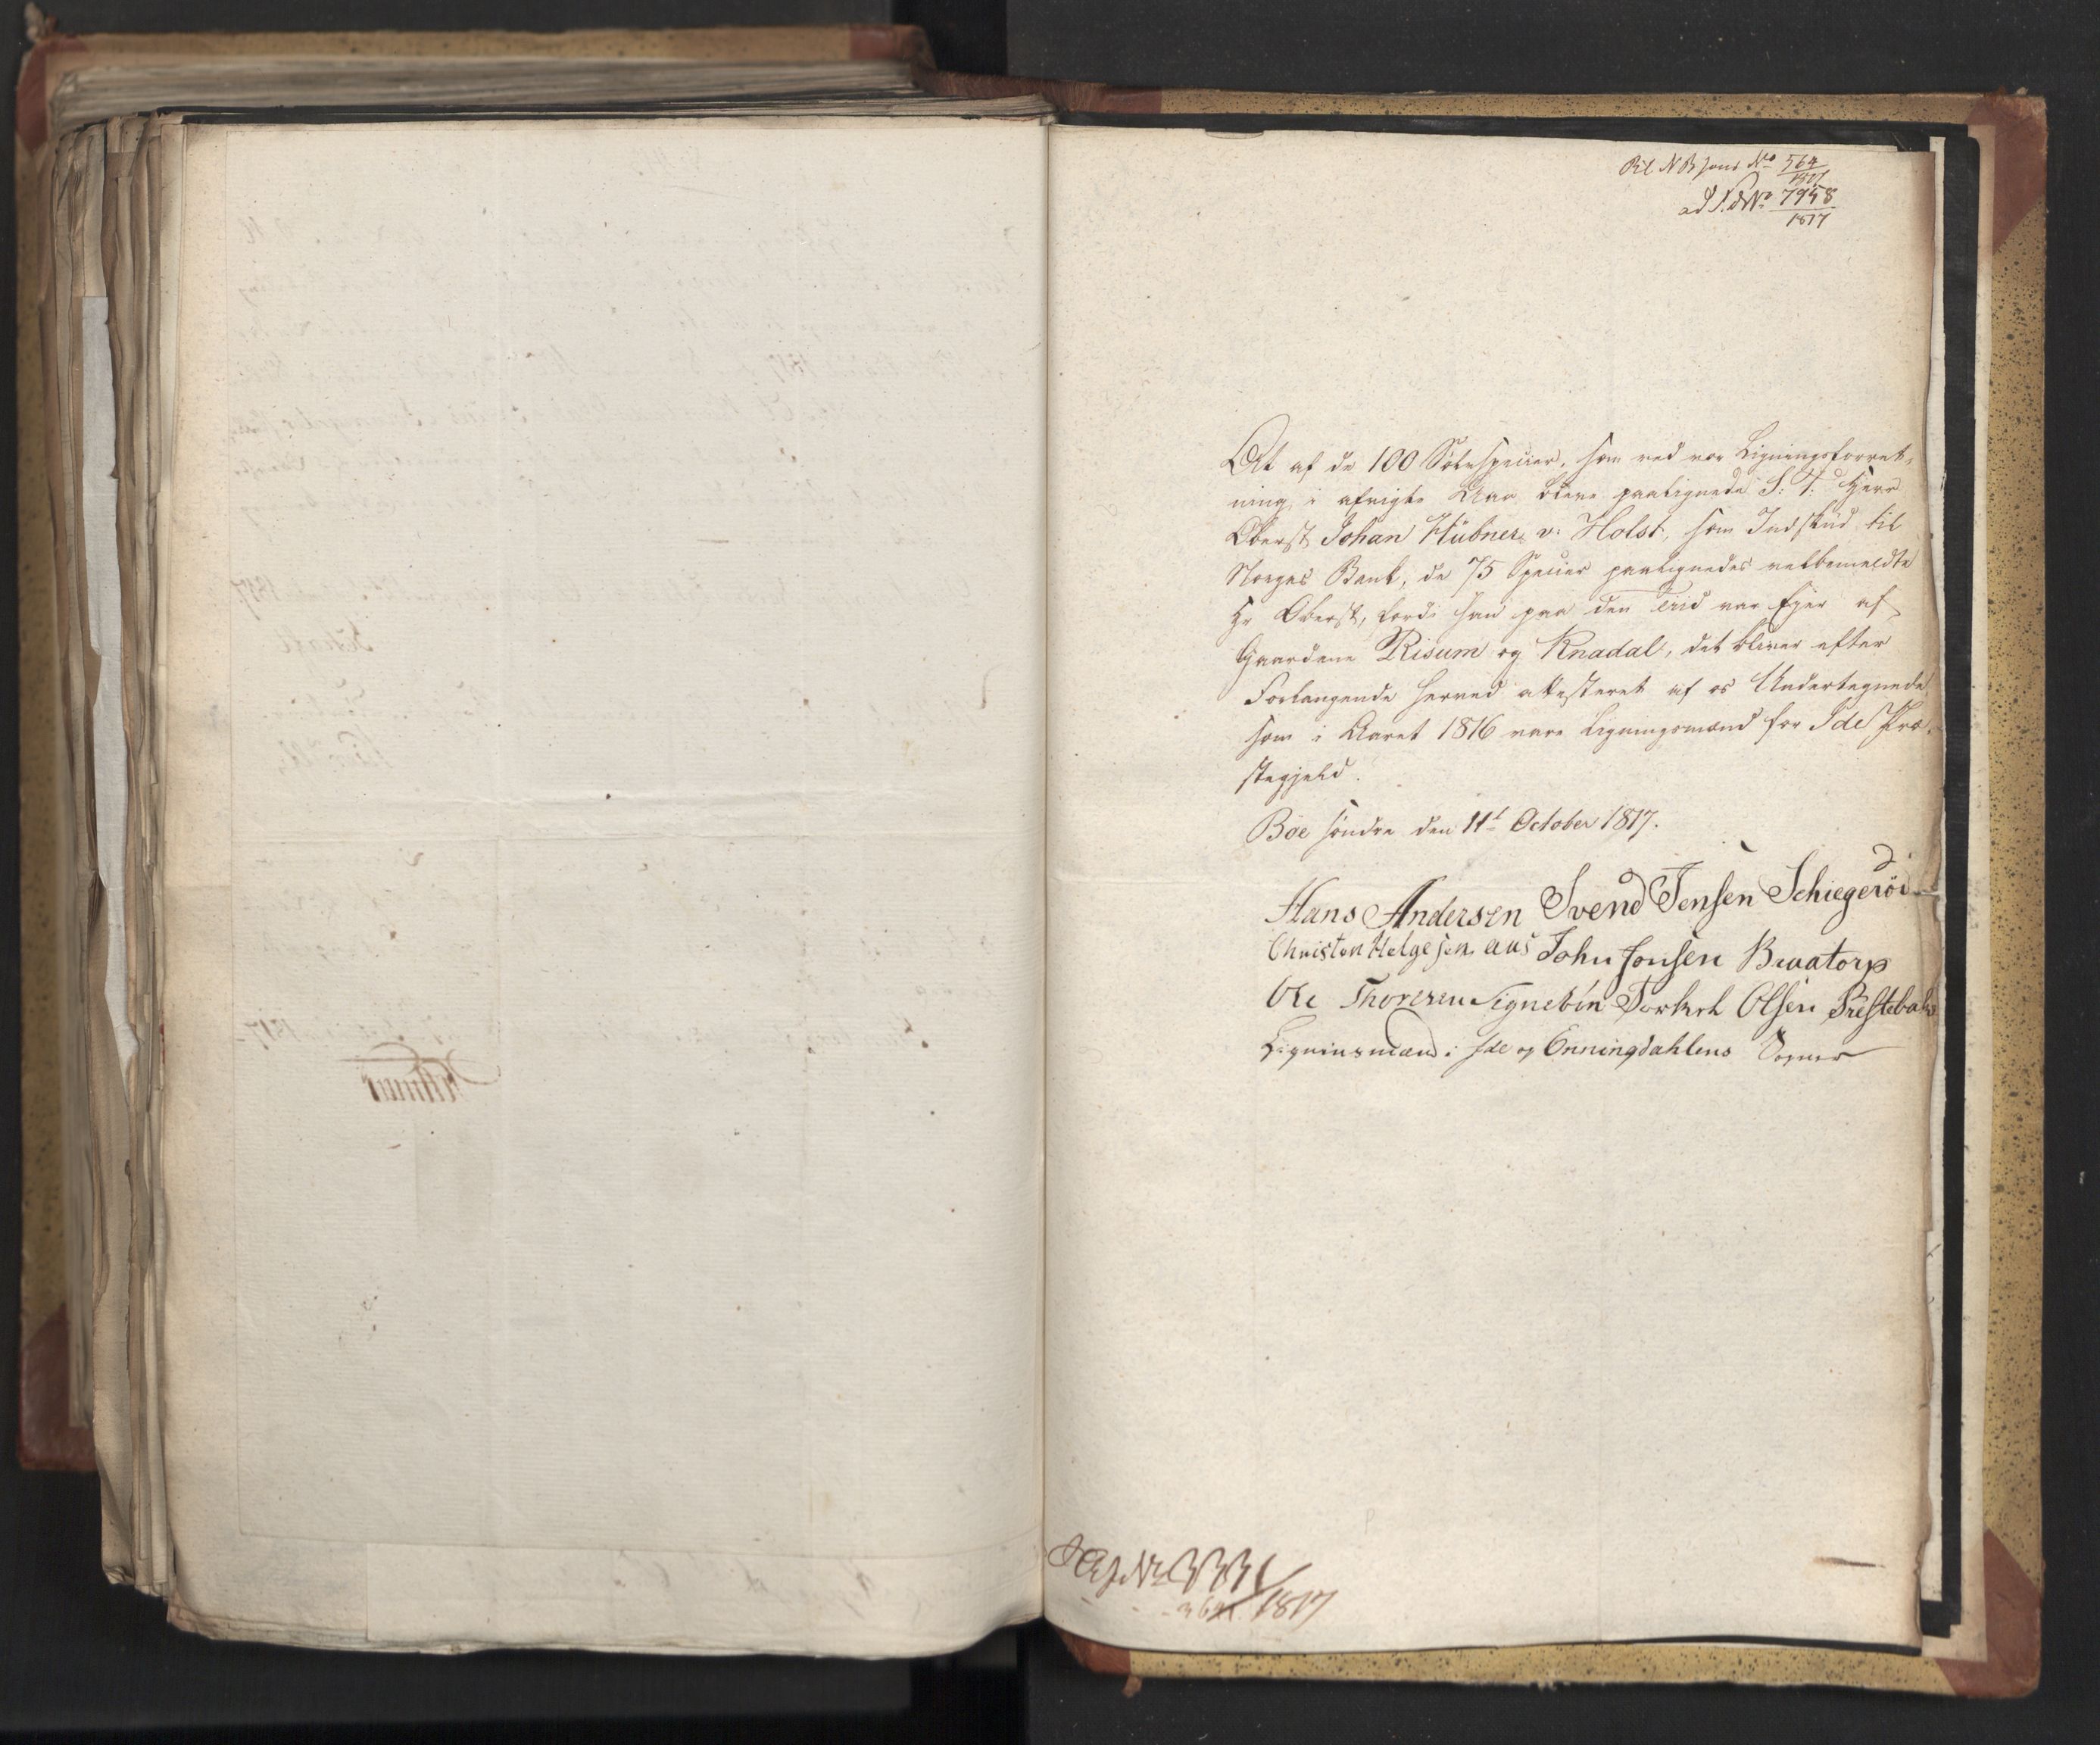 Bil N B Jour No 564/1817
ad No 7958/1817
At af de 100 Sølvspecier, som ved vor Ligningsforret-
ning i afvigte Aar bleve paalignede S. T. Herr
Oberst Johan Hübner v. Holst, som Indskud til
Norges Bank, de 75 Specier paalignedes velbemeldte
Hr Oberst, fordi han paa den Tid var Ejer af
Gaardene Risum og Knadal, det bliver efter
Forlangende herved attesteret af os Undertegnede
som i Aaret 1816 vare Ligningsmænd for Ide Præ-
stegjeld.
Bøe søndre den 11t October 1817.
Hans Andersen Svend Jensen Schiegerød
Christen Helgesen aas John Jonsen Braatorp
Ole Thoresen Signebøn Torkel Olsen Prestebak
Ligninsmænd i Ide og Enningdahlens Sogner
1817